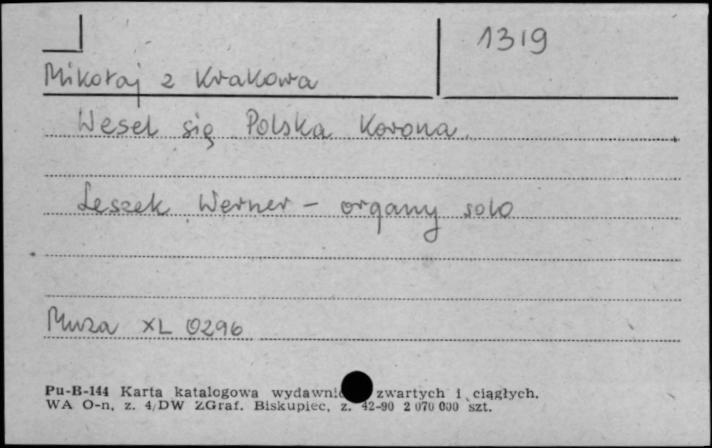 1319
Mikołaj z Krakowa
Wesel się Polska Korona
Leszek Werner - organy solo
Muza XL 0296
Pu-B-144 Karta katalogowa zwartych i ciągłych.
WA O-n, z. 4/DW ZGraf. Biskupiec, z. 42-90 2 070 000 szt.